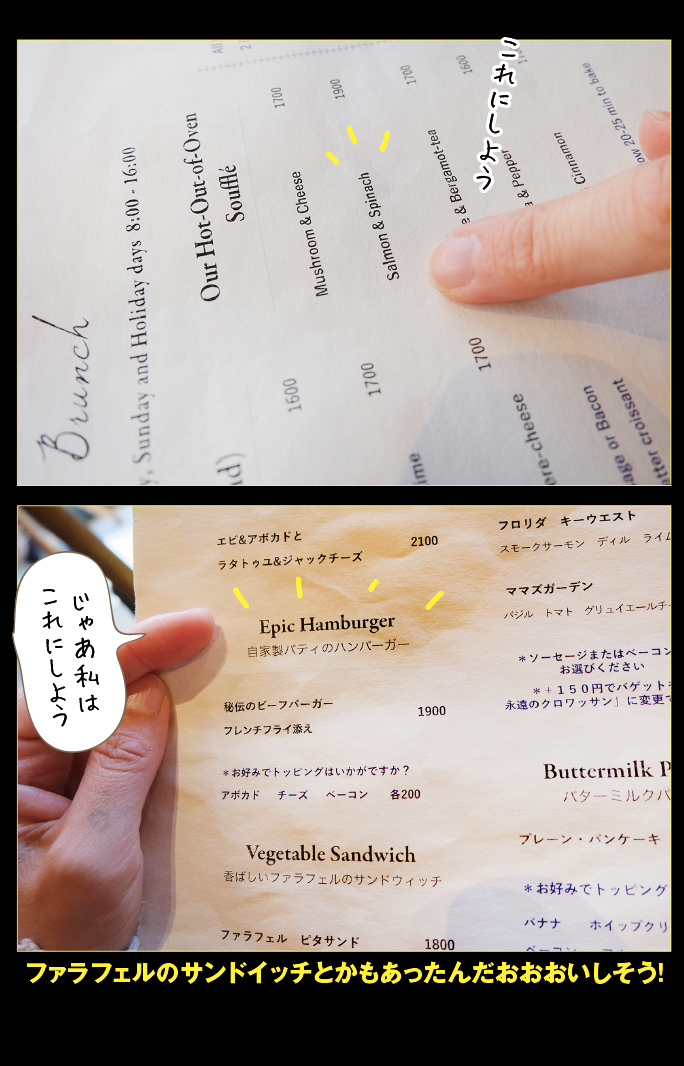 これにしよう
Brunch
Sunday and Holiday days 8:00 - 16:00
Our Hot-Out-of-Oven
Soufflé
1700
1900
1700
1600
Mushroom & Cheese
Salmon & Spinach
& Bergamot-tea
& Pepper
Cinnamon
20-25 min to bake
1600
1700
1700
or Bacon
croissant
じゃあ私は
これにしよう
エビ&アボカドと
ラタトゥユ&ジャックチーズ 2100
Epic Hamburger
自家製パティのハンバーガー
秘伝のビーフバーガー
フレンチフライ添え 1900
*お好みでトッピングはいかがですか?
アボカド チーズ ベーコン 各200
Vegetable Sandwich
香ばしいファラフェルのサンドウィッチ
ファラフェル ピタサンド 1800
フロリダ キーウエスト
スモークサーモン ディル ライム
ママズガーデン
バジル トマト グリュイエールチー
*ソーセージまたはベーコン
お選びください
*+150円でバゲット
永遠のクロワッサン」に変更
Buttermilk P
バターミルクパ
プレーン・パンケーキ
*お好みでトッピング
バナナ ホイップクリ
ファラフェルのサンドイッチとかもあったんだおおおいしそう!